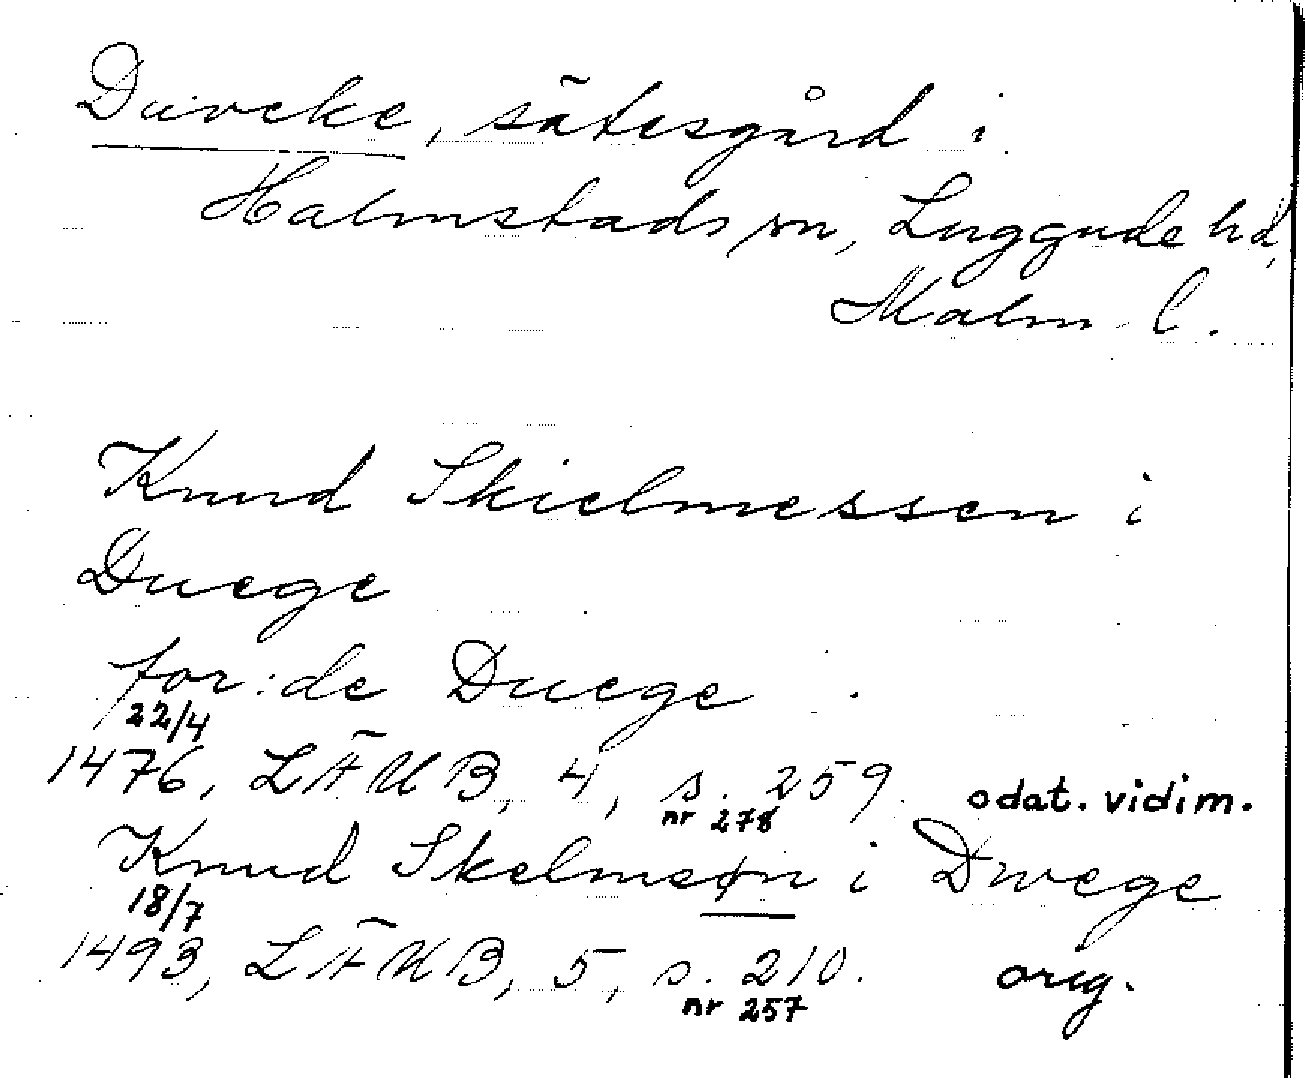 Duveke, sätesgård i
Halmstads sn, Luggude hd,
Malm. l.
Knud Skielmessen i
Duege
for:de Duege.
22/4
1476, LÄUB, 4, s. 259. odat. vidim.
nr 278
Knud Skelmeøn i Dwege
18/7
1493, LÄUB, 5, s. 210. orig.
nr 257